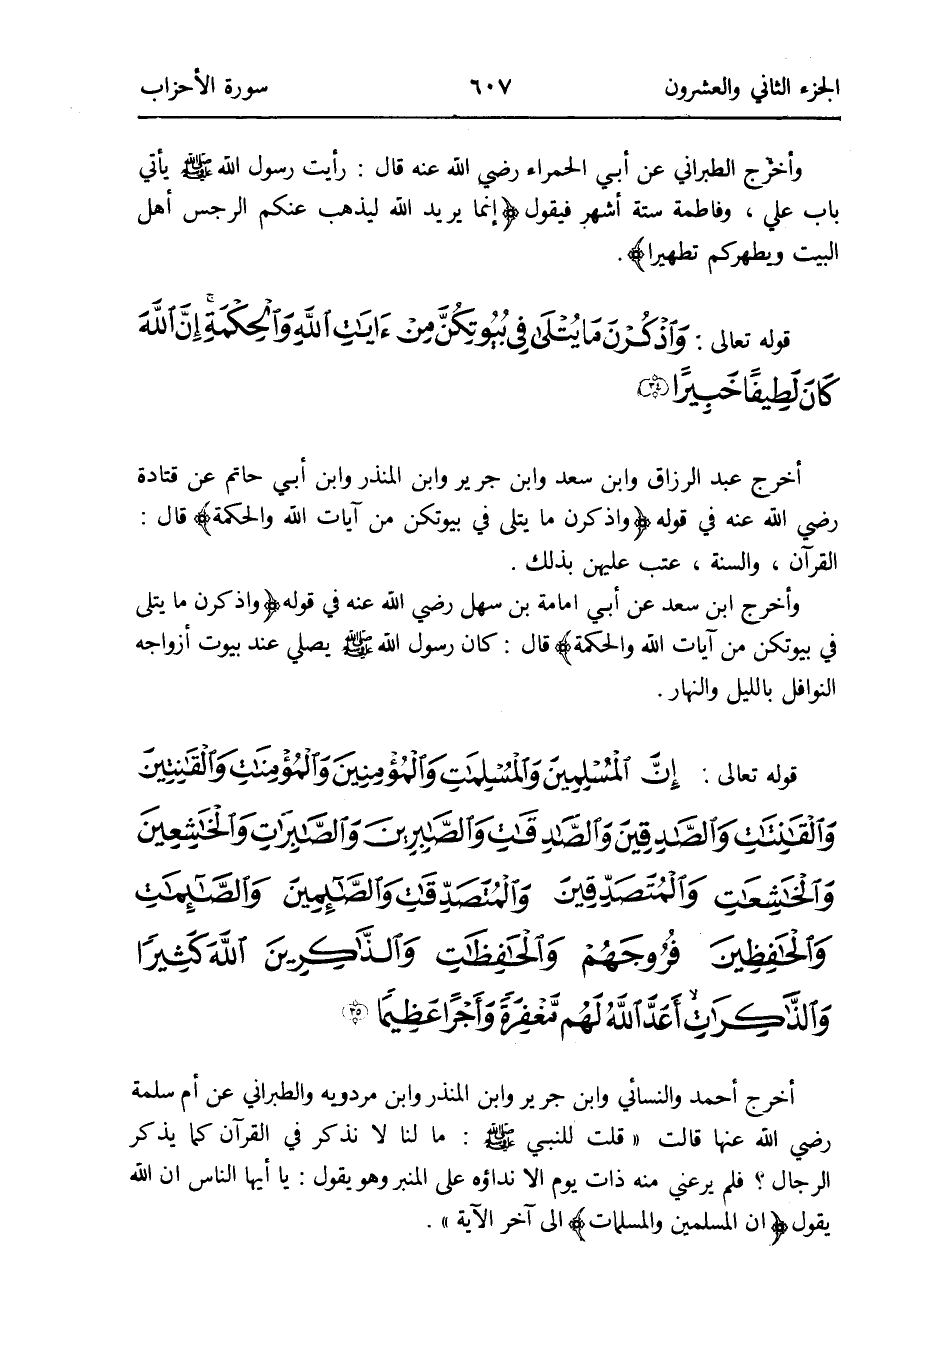 الجزء الثاني والعشرون ٦٠٧ سورة الأحزاب
وأخرج الطبراني عن أبي الحمراء رضي الله عنه قال : رأيت رسول الله ﷺ يأتي
باب علي ، وفاطمة ستة أشهر فيقول ﴿إنما يريد الله ليذهب عنكم الرجس أهل
البيت ويطهركم تطهيرا﴾ .
قوله تعالى : وَٱذْكُرْنَ مَا يُتْلَىٰ فِى بُيُوتِكُنَّ مِنْ ءَايَٰتِ ٱللَّهِ وَٱلْحِكْمَةِ ۚ إِنَّ ٱللَّهَ
كَانَ لَطِيفًا خَبِيرًا ٣٤
أخرج عبد الرزاق وابن سعد وابن جرير وابن المنذر وابن أبي حاتم عن قتادة
رضي الله عنه في قوله ﴿واذكرن ما يتلى في بيوتكن من آيات الله والحكمة﴾ قال :
القرآن ، والسنة ، عتب عليهن بذلك .
وأخرج ابن سعد عن أبي امامة بن سهل رضي الله عنه في قوله ﴿واذكرن ما يتلى
في بيوتكن من آيات الله والحكمة﴾ قال : كان رسول الله ﷺ يصلي عند بيوت أزواجه
النوافل بالليل والنهار .
قوله تعالى : إِنَّ ٱلْمُسْلِمِينَ وَٱلْمُسْلِمَٰتِ وَٱلْمُؤْمِنِينَ وَٱلْمُؤْمِنَٰتِ وَٱلْقَٰنِتِينَ
وَٱلْقَٰنِتَٰتِ وَٱلصَّٰدِقِينَ وَٱلصَّٰدِقَٰتِ وَٱلصَّٰبِرِينَ وَٱلصَّٰبِرَٰتِ وَٱلْخَٰشِعِينَ
وَٱلْخَٰشِعَٰتِ وَٱلْمُتَصَدِّقِينَ وَٱلْمُتَصَدِّقَٰتِ وَٱلصَّٰٓئِمِينَ وَٱلصَّٰٓئِمَٰتِ
وَٱلْحَٰفِظِينَ فُرُوجَهُمْ وَٱلْحَٰفِظَٰتِ وَٱلذَّٰكِرِينَ ٱللَّهَ كَثِيرًا
وَٱلذَّٰكِرَٰتِ ۙ أَعَدَّ ٱللَّهُ لَهُم مَّغْفِرَةً وَأَجْرًا عَظِيمًا ٣٥
أخرج أحمد والنسائي وابن جرير وابن المنذر وابن مردويه والطبراني عن أم سلمة
رضي الله عنها قالت « قلت للنبي ﷺ : ما لنا لا نذكر في القرآن كما يذكر
الرجال ؟ فلم يرعني منه ذات يوم الا نداؤه على المنبر وهو يقول : يا أيها الناس ان الله
يقول ﴿ان المسلمين والمسلمات﴾ الى آخر الآية » .